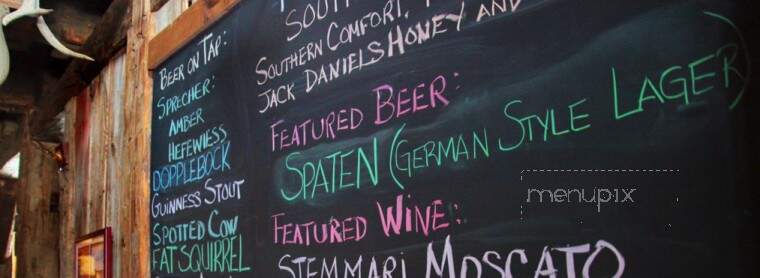 BEER ON TAP:
SPRECHER:
AMBER
HEFEWIESS
DOPPLEBOCK
GUINNESS STOUT
SPOTTED COW
FAT SQUIRREL
SOUTHERN COMFORT,
JACK DANIELS HONEY AND
FEATURED BEER:
SPATEN (GERMAN STYLE LAGER)
FEATURED WINE:
STEMMARI MOSCATO
menupix